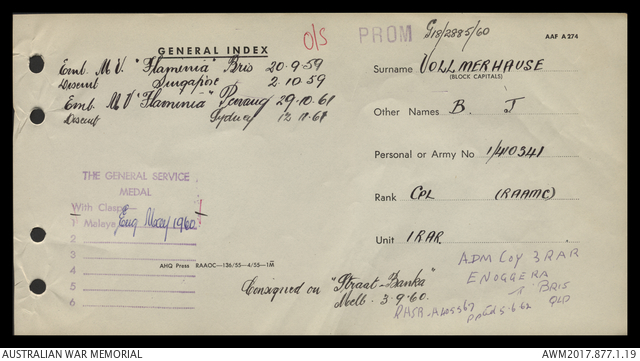 GENERAL INDEX
O/S
PROM
G18/2885/60
AAF A 274
Emb. M.V. "Flaminia" Bris 20-9-59
Disemb Singapore 2.10.59
Emb. M V "Flaminia" Penang 29.10.61
Disemb Sydney 12 11.61
Surname VOLLMERHAUSE
(BLOCK CAPITALS)
Other Names B. J
Personal or Army No 1/410341
Rank CPL (RAAMC)
Unit 1 RAR
THE GENERAL SERVICE
MEDAL
With Clasp
1 Malaya Enq May 1960
2
3
4
5
6
AHQ Press RAAOC—136/55—4/55—1M
Consigned on "Straat-Banka"
Melb. 3.9.60.
ADM COY 3 RAR
ENOGGERA
BRIS
QLD
5.6.62
AUSTRALIAN WAR MEMORIAL
AWM2017.877.1.19